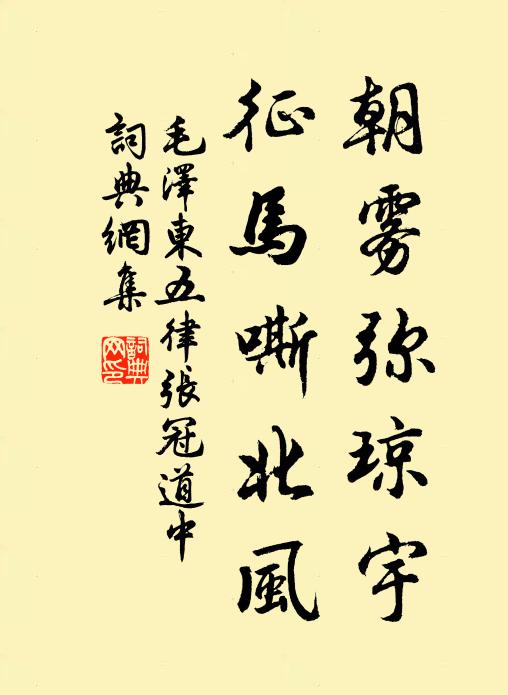 朝雾弥琼宇
征馬嘶北風
毛澤東五律張冠道中
詞典網集
詞典网印